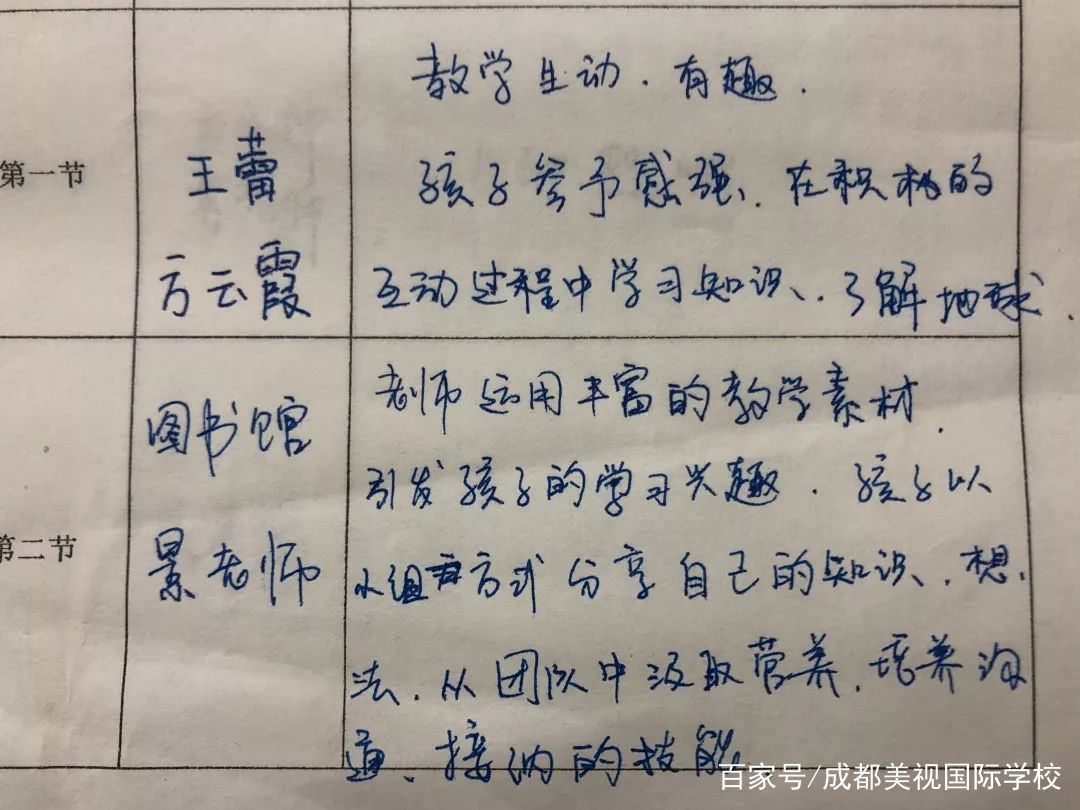 第一节
王蕾
方云霞
教学生动.有趣.
孩子参予感强、在积极的
互动过程中学习知识、了解地球.
第二节
图书馆
景老师
老师运用丰富的教学素材.
引发孩子的学习兴趣.孩子以
小组方式分享自己的知识、想
法.从团队中汲取营养.培养沟
通、接纳的技能.
百家号/成都美视国际学校